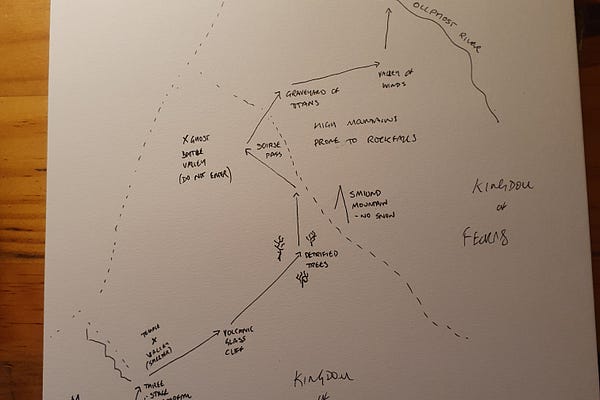 OLLPHOST RIVER
VALLEY OF
WINDS
GRAVEYARD OF
TITANS
HIGH MOUNTAINS
PRONE TO ROCKFALLS
X GHOST
BATTLE
VALLEY
(DO NOT ENTER)
PASS
KINGDOM
OF
MOUNTAIN
- NO SNOW
PETRIFIED
TREES
TEMPLE
X
VALLEY
(SHELTER)
VOLCANIC
GLASS
CLIFF
THREE
KINGDOM
OF